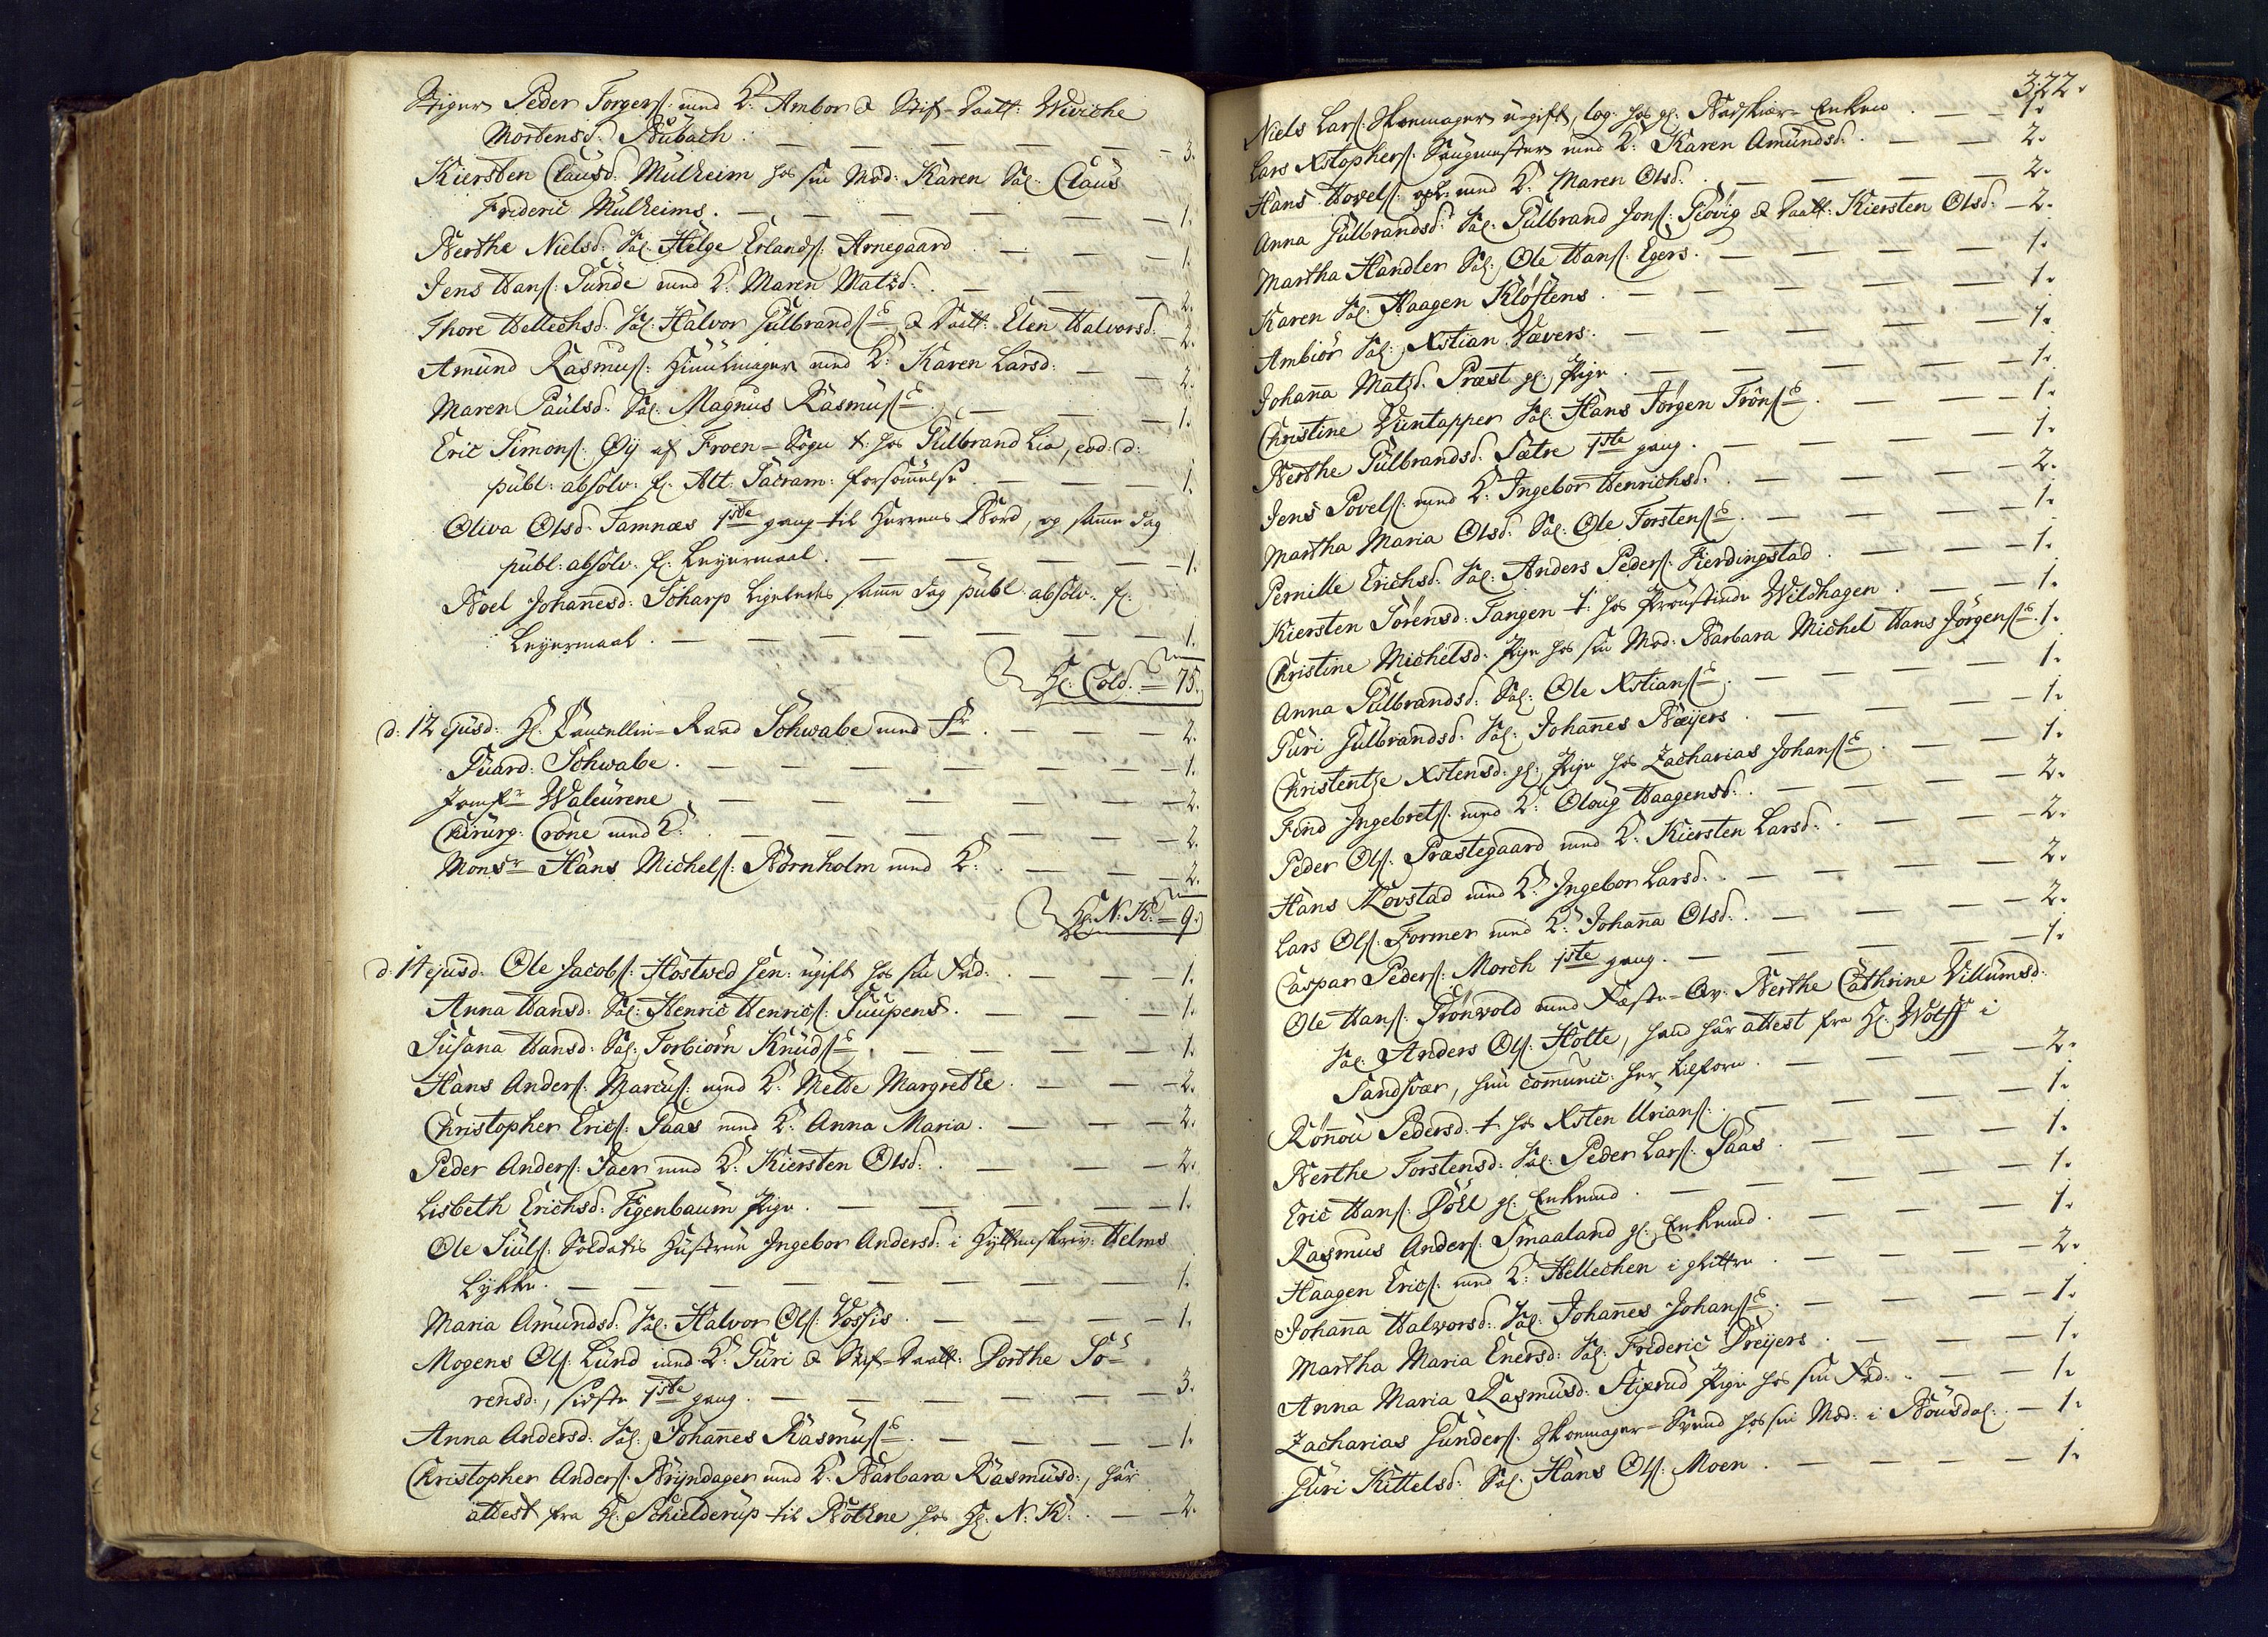 Stiger Peder Torgerſ: med K: Ambor & Stif-Daatt: Wiviche
Mortensd: Bübach. — — — — — — 3.
Kiersten Claüsd: Mülheim hos sin Mod: Karen Sal: Claüs
Frideric Mülheims. — — — — — — 1.
Berthe Nielsd: Sal: Helge Erlandſ: Arnegaard — — — 1.
Jens Hanſ: Lünde med K: Maren Matzd: — — — 2.
Thore Hellechsd: Sal: Halvor Gülbrandſes & Datt: Elen Halvorsd: 2.
Amünd Rasmuſ: Hiuülmager med K: Karen Larsd: — — 2.
Maren Paülsd: Sal: Magnus Rasmüſes — — — 1.
Eric Simonſ: Øÿ af Froen-Sogn t: hos Gülbrand Lia, eod: d:
pübl: absolv: f: Alt: Sacram: forsømmelse — — — 1.
Oliva Olsd: Tamnæs 1ste gang til Herrens Bord, og samme dag
pübl: absolv: f: Leyermaal. — — — — — 1.
Boel Johannesd: Scharp ligeledes samme dag pübl: absolv: f:
Leyermaal. — — — — — — 1.
Hr: Cold. = 75.
d: 12 ejüsd: Hr: Cancellie-Raad Schwabe med Fr — — 2.
Güard: Schwabe. — — — — — — 1.
Jomfr Waleürene — — — — — — 2.
Chirurg: Crone med K: — — — — — 2.
Monsr Hans Michelſ: Bornholm med K: — — — 2.
Hr: N: K: = 9.
d: 14 ejüsd: Ole Jacobſ: Hostwed sen: ügift hos sin Fad: — — 1.
Anna Hansd: Sal: Henric Henricſ: Süüpens. — — — 1.
Süsana Hansd: Sal: Torbiørn Knüdſes — — — — 1.
Hans Anderſ: Marcüſ: med K: Mette Margrethe — — 2.
Christopher Ericſ: Paas med K: Anna Maria. — — — 2.
Peder Anderſ: Saer med K: Kiersten Olsd: — — — 2.
Lisbeth Erichsd: Figenbaüm Pige. — — — — 1.
Ole Siülſ: Soldats Hüstrue Ingebor Andersd: i Hÿtteskriv: Helms
Løkke. — — — — — — — 1.
Maria Amündsd: Sal: Halvor Olſ: Vossis. — — — 1.
Mogens Olſ: Lünd med K: Güri & Stif-Daatt: Dorthe Sö=
rensd:, sidste 1ste gang. — — — — — 3.
Anna Andersd: Sal: Johannes Rasmüſes. — — — 1.
Christopher Anderſ: Brÿndager med K: Barbara Rasmüsd:, har
attest fra Hr: Schielderüp til Bothne hos Hr: N: K: — — 2.
322.
Niels Larſ: Skoemager ügift, log: hos gl: Badskiær-Enken — — 1.
Lars Xstopherſ: Saugmester med K: Karen Amündsd: — — 2.
Hans Hovelſ: med K: Maren Olsd: — — — — 2.
Anna Gülbrandsd: Sal: Gülbrand Jonſ: Fløvig & Daatt: Kiersten Olsd: — 2.
Martha Handler Sal: Ole Hanſ: Egers. — — — — 1.
Karen Sal: Haagen Kløftens. — — — — — 1.
Ambiör Sal: Xstian Vævers. — — — — — 1.
Johanna Matzd: Præst gl: Pige. — — — — — 1.
Christine Viintapper Sal: Hans Jørgen Trönſes. — — — 1.
Berthe Gülbrandsd: Sætre 1ste gang. — — — — 1.
Jens Povelſ: med K: Ingebor Henrichsd: — — — — 2.
Martha Maria Olsd: Sal: Ole Torstenſes. — — — — 1.
Pernille Erichsd: Sal: Anders Pederſ: Fierdingstad. — — — 1.
Kiersten Sörensd: Tangen t: hos Proustinde Wildhagen. — — 1.
Christine Michelsd: Pige hos sin Mod: Barbara Michel Hans Jörgenſes. 1.
Anna Gülbrandsd: Sal: Ole Xstianſes. — — — — 1.
Güri Gülbrandsd: Sal: Johannes Bæÿers. — — — — 1.
Christentze Xstensd: gl: Pige hos Zacharias Johanſes. — — 1.
Find Ingebretſ: med K: Oloüg Haagensd: — — — 2.
Peder Olſ: Præstegaard med K: Kiersten Larsd: — — — 2.
Hans Kovstad med K: Ingebor Larsd: — — — — 2.
Lars Olſ: Former med K: Johanna Olsd: — — — — 2.
Caspar Pederſ: Morch 1ste gang. — — — — — 1.
Ole Hanſ: Grönvold med Fæste-Qv: Berthe Cathrine Villümsd:
Sal: Anders Olſ: Holte, hand har attest fra Hr: Wolff i
Sandsvær, hun communic: her tilforn. — — — — 2.
Rönnou Pedersd: t hos Xsten Urianſ: — — — — 1.
Berthe Torstensd: Sal: Peder Larſ: Paas. — — — — 1.
Eric Hanſ: Döll gl: Enkemd. — — — — — 1.
Rasmus Anderſ: Smaaland gl: Enkemd. — — — — 1.
Haagen Ericſ: med K: Hellechen i Hütten. — — — — 2.
Johanna Halvorsd: Sal: Johannes Johanſes. — — — — 1.
Martha Maria Enersd: Sal: Frideric Dreÿers. — — — 1.
Anna Maria Rasmüsd: Stixrüd Pige hos sin Fad: — — 1.
Zacharias Günderſ: Skoemager-Svend hos sin Mod: i Bousdal. — 1.
Güri Kittelsd: Sal: Hans Olſ: Moen. — — — — 1.